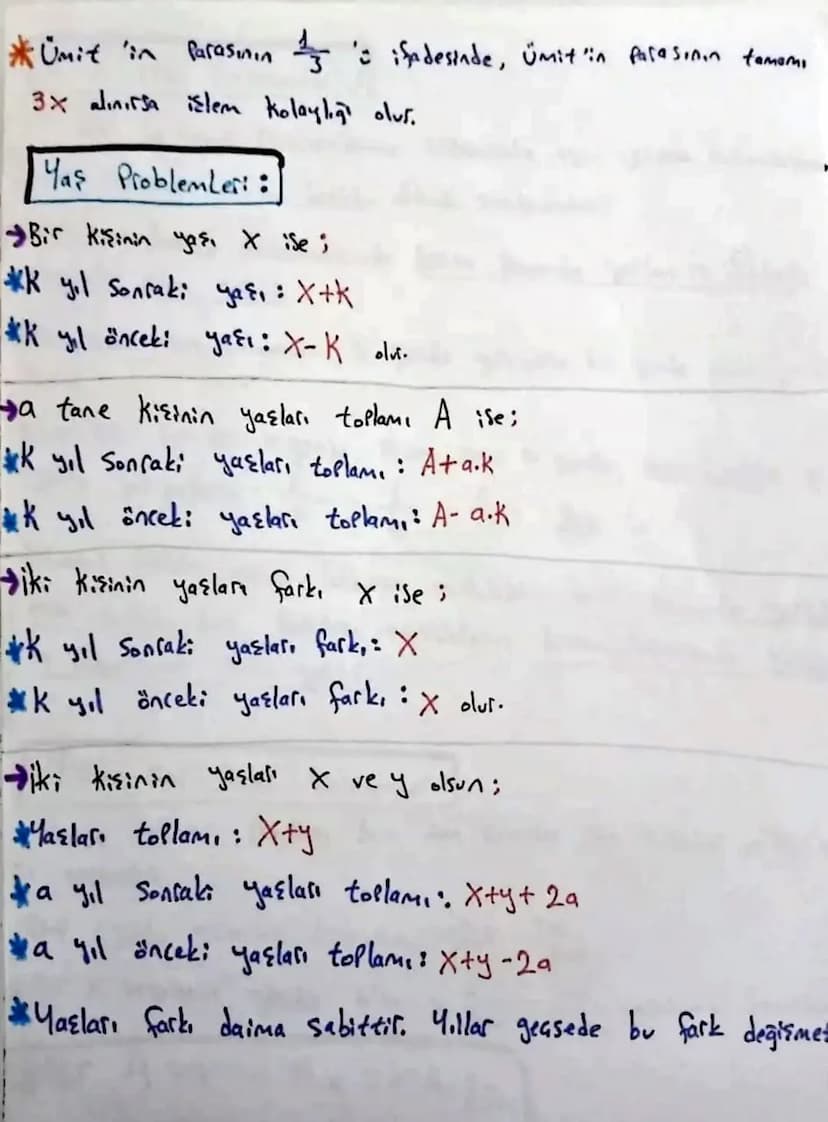 * Ümit'in Parasının 1/3 'ü ifadesinde, Ümit'in Parasının tamamı
3x alınırsa işlem kolaylığı olur.
Yaş Problemleri:
→Bir kişinin yaşı x ise;
*K yıl sonraki yaşı: x+K
*K yıl önceki yaşı: x-K olur.
→a tane kişinin yaşları toplamı A ise;
*K yıl sonraki yaşları toplamı: A+a.K
*K yıl önceki yaşları toplamı: A- a.K
→iki kişinin yaşları farkı x ise;
*K yıl sonraki yaşları farkı: x
*K yıl önceki yaşları farkı: x olur.
→iki kişinin yaşları x ve y olsun;
*Yaşları toplamı: x+y
*a yıl sonraki yaşları toplamı: x+y+2a
*a yıl önceki yaşları toplamı: x+y-2a
*Yaşları farkı daima sabittir. Yıllar geçsede bu fark değişmez